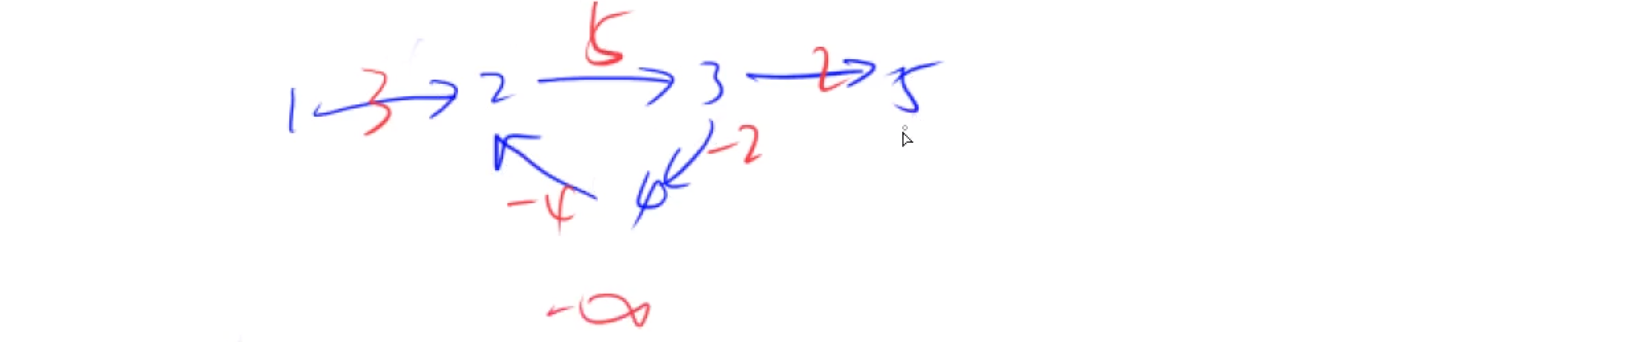 5
1 3 2 3 2 5
-2
-4 4
-∞